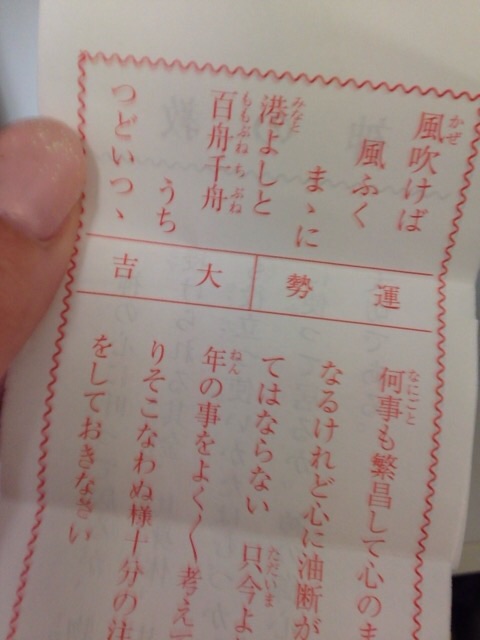 風吹けば
風ふく
まゝに
港よしと
百舟千舟
うち
つどいつゝ
運勢
大吉
何事も繁昌して心のま
なるけれど心に油断が
てはならない 只今よ
年の事をよく〳〵考えて
りそこなわぬ様十分の注
をしておきなさい